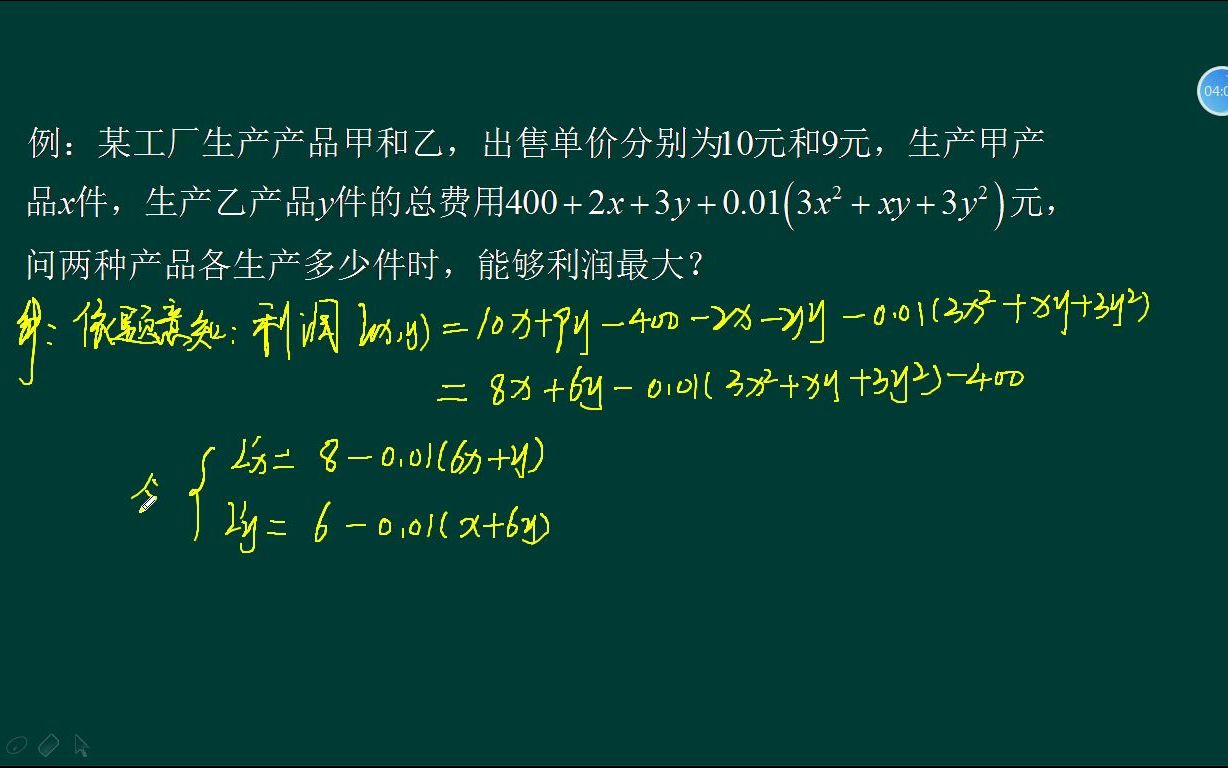 例：某工厂生产产品甲和乙，出售单价分别为10元和9元，生产甲产
品x件，生产乙产品y件的总费用400+2x+3y+0.01(3x²+xy+3y²)元，
问两种产品各生产多少件时，能够利润最大？
解：依题意知：利润 L(x,y) = 10x+9y-400-2x-3y-0.01(3x²+xy+3y²)
= 8x+6y-0.01(3x²+xy+3y²)-400
L'x = 8-0.01(6x+y)
令
L'y = 6-0.01(x+6y)